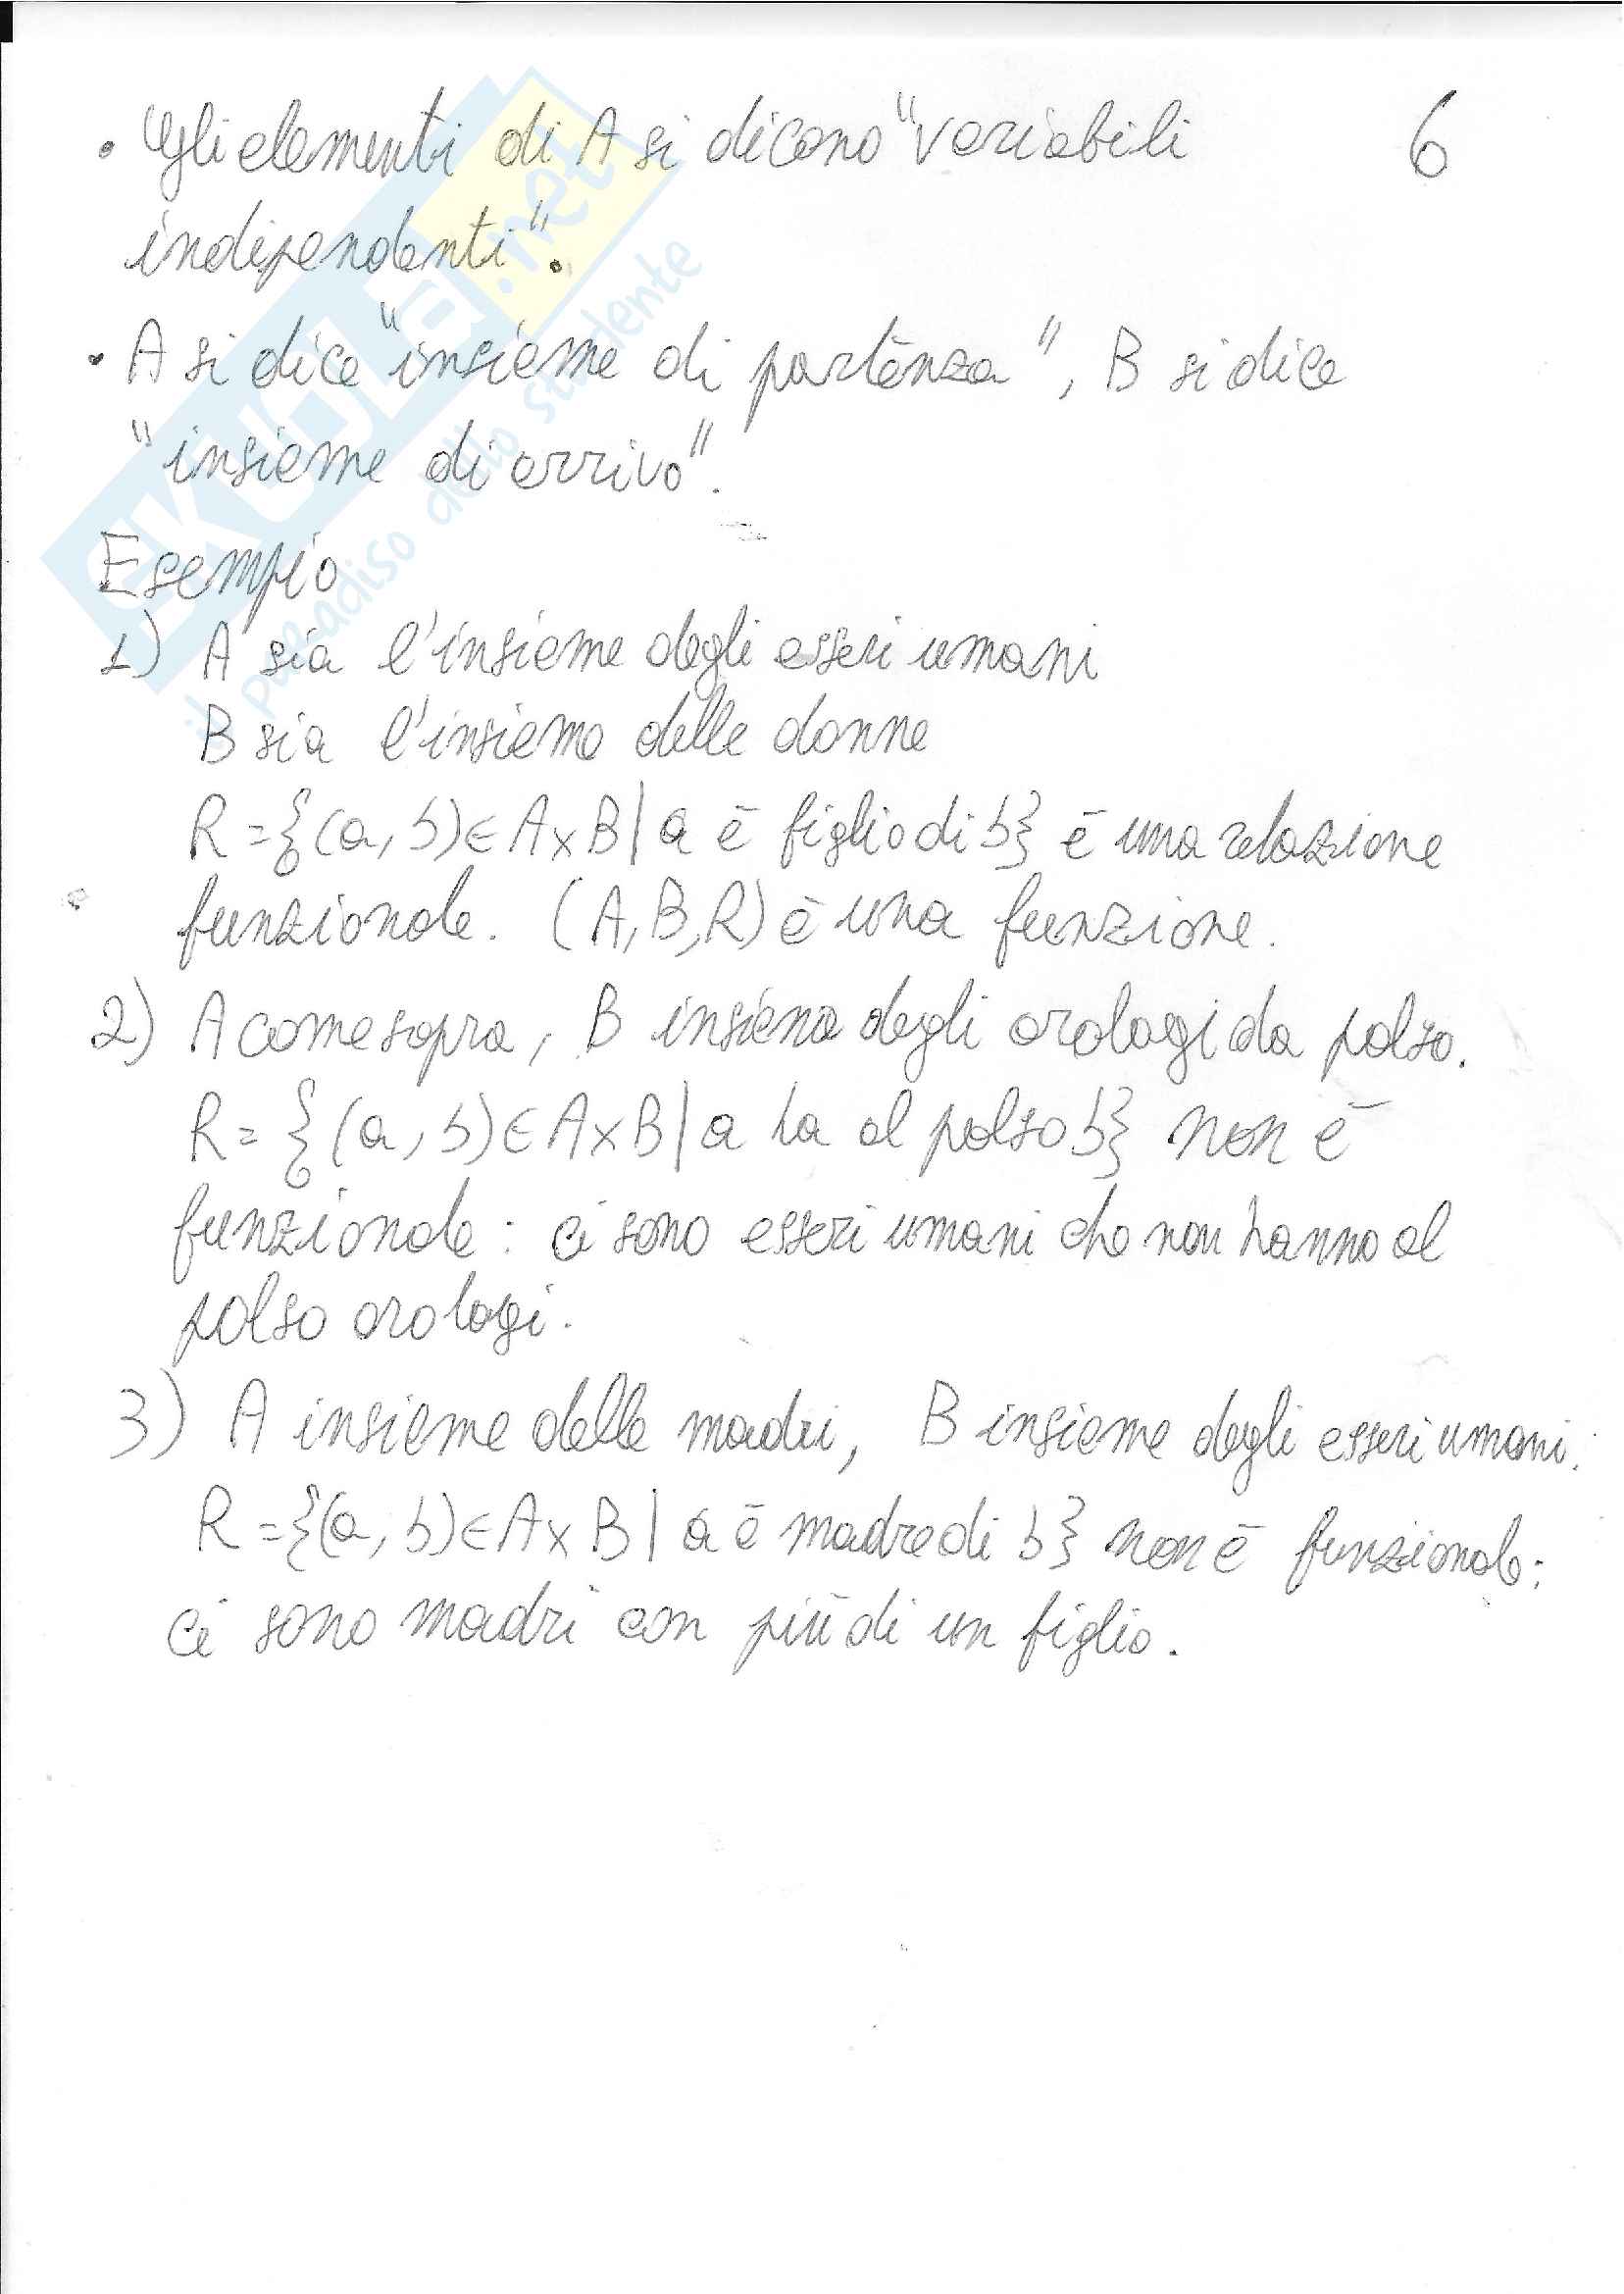 • Gli elementi di A si dicono "variabili 6
indipendenti".
• A si dice "insieme di partenza", B si dice
"insieme di arrivo".
Esempio
1) A sia l'insieme degli esseri umani
B sia l'insieme delle donne
R = {(a, b) ∈ A x B | a è figlio di b} è una relazione
funzionale. (A, B, R) è una funzione.
2) A come sopra, B insieme degli orologi da polso.
R = {(a, b) ∈ A x B | a ha al polso b} non è
funzionale: ci sono esseri umani che non hanno al
polso orologi.
3) A insieme delle madri, B insieme degli esseri umani.
R = {(a, b) ∈ A x B | a è madre di b} non è funzionale:
ci sono madri con più di un figlio.
skuola.net
il paradiso dello studente